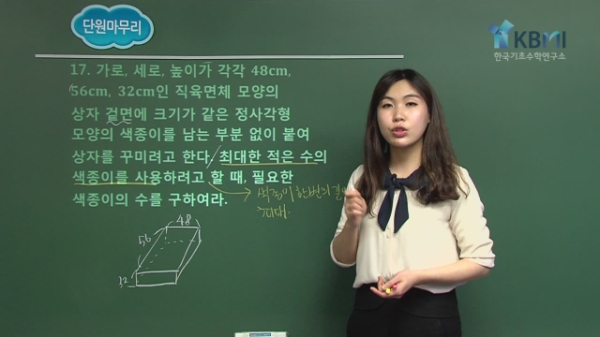 단원마무리
KBMI
한국기초수학연구소
17. 가로, 세로, 높이가 각각 48cm,
56cm, 32cm인 직육면체 모양의
상자 겉면에 크기가 같은 정사각형
모양의 색종이를 남는 부분 없이 붙여
상자를 꾸미려고 한다. 최대한 적은 수의
색종이를 사용하려고 할 때, 필요한
색종이의 수를 구하여라.
색종이 한변의 길이
최대
48
56
32